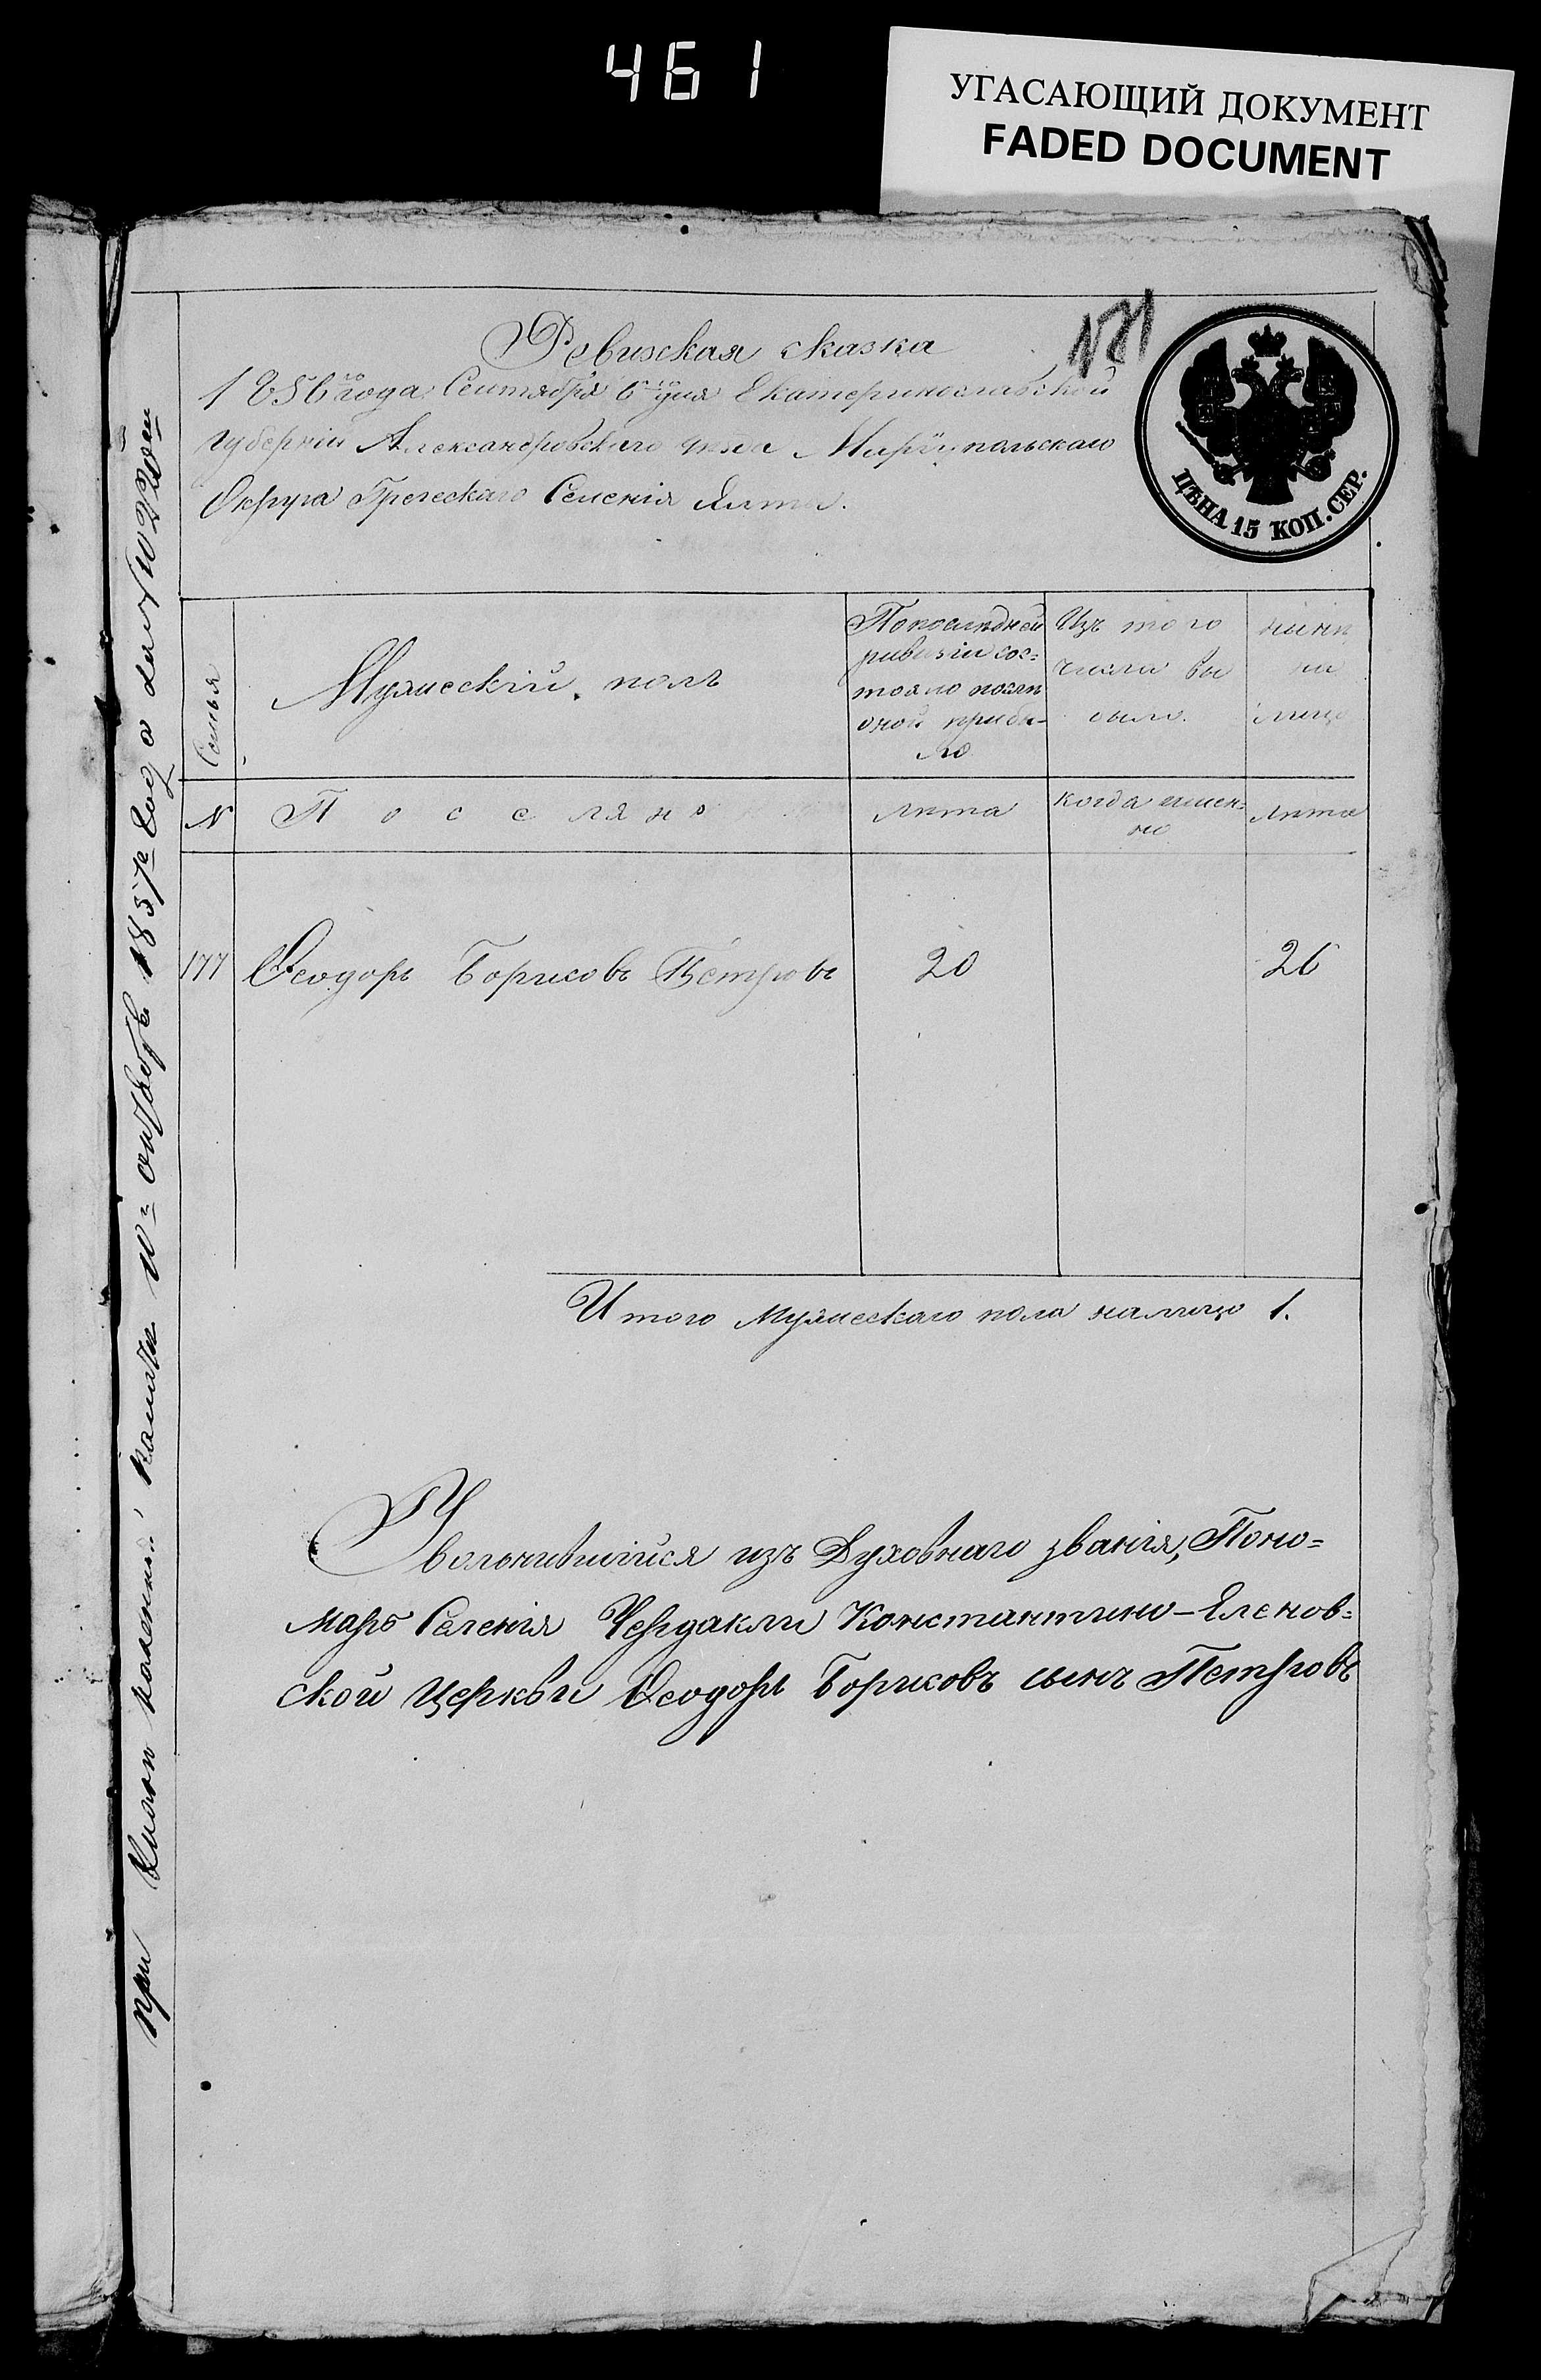 461
УГАСАЮЩИЙ ДОКУМЕНТ
FADED DOCUMENT
Ревизская сказка
1856го года Сентября 6го дня Екатеринославской
Губернiи Александровскаго уѣзда Марiупольскаго
Округа Греческаго Селенiя Ялты.
ЦѢНА 15 КОП. СЕР.
Семья
Мужескiй полъ
По последней
ревизiи сос-
тояло и послѣ
оной прибы-
ло
Изъ того
числа вы
было.
нынѣ
на
лицо
№
Поселянъ
лѣта
когда имен-
но
лѣта
177
Феодоръ Борисовъ Петровъ
20
26
Итого Мужескаго пола налицо 1.
Уволнившiйся изъ Духовнаго званiя, Поно=
марь Селенiя Чердакли Константино-Еленов=
ской Церкви Феодоръ Борисовъ сынъ Петровъ
при казенной 1857го года